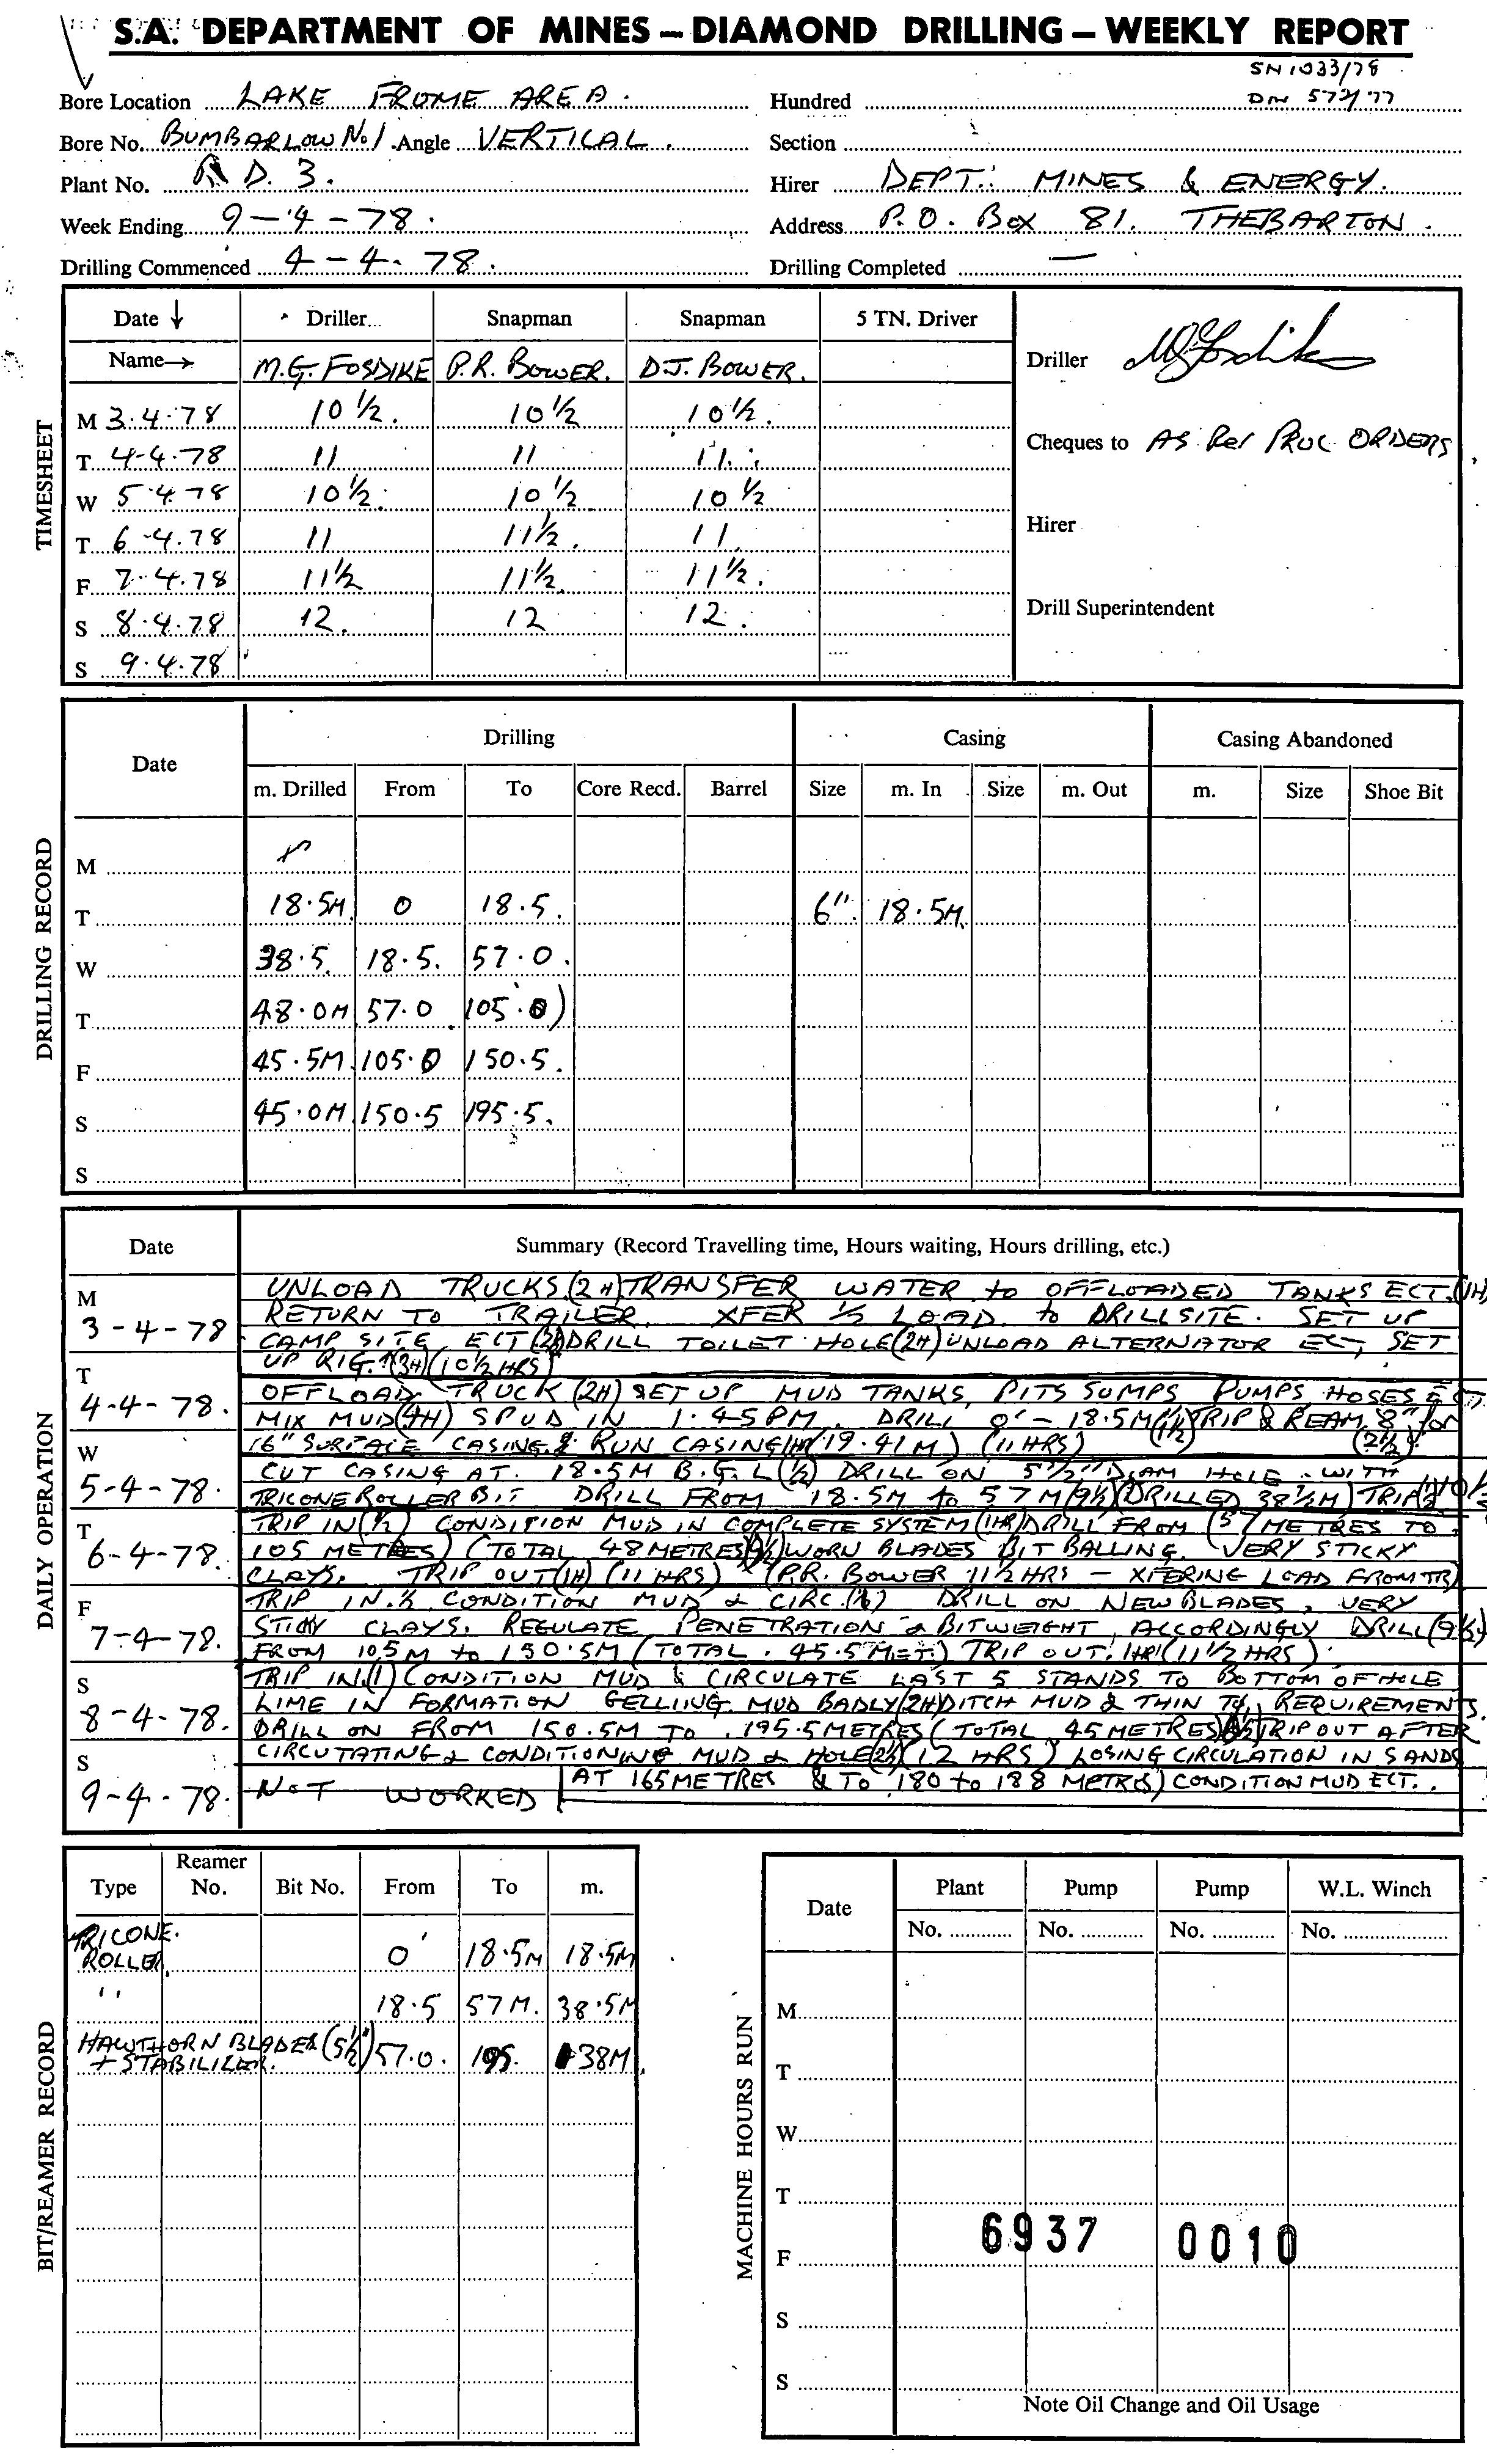 S.A. DEPARTMENT OF MINES — DIAMOND DRILLING — WEEKLY REPORT
SN 1033/78
Bore Location LAKE FROME AREA. Hundred DN 572/77
Bore No. BUMBARLOW No 1 Angle VERTICAL. Section
Plant No. R D. 3. Hirer DEPT: MINES & ENERGY.
Week Ending 9-4-78. Address P.O. BOX 81. THEBARTON.
Drilling Commenced 4-4-78. Drilling Completed —
TIMESHEET
Date ↓ Driller Snapman Snapman 5 TN. Driver
Name→ M.G. FOSDIKE P.R. BOWER. D.J. BOWER. Driller
M 3.4.78 10 1/2. 10 1/2 10 1/2.
T 4-4.78 11 11 11. Cheques to AS Per PROC ORDERS
W 5.4.78 10 1/2. 10 1/2 10 1/2
T 6-4.78 11 11 1/2. 11 Hirer
F 7.4.78 11 1/2 11 1/2 11 1/2.
S 8.4.78 12. 12 12. Drill Superintendent
S 9.4.78
DRILLING RECORD
Date Drilling Casing Casing Abandoned
m. Drilled From To Core Recd. Barrel Size m. In Size m. Out m. Size Shoe Bit
M
T 18.5M 0 18.5. 6" 18.5M
W 38.5 18.5. 57.0.
T 48.0M 57.0 105.0)
F 45.5M 105.0 150.5.
S 45.0M 150.5 195.5.
S
DAILY OPERATION
Date Summary (Record Travelling time, Hours waiting, Hours drilling, etc.)
M 3-4-78 UNLOAD TRUCKS (2H) TRANSFER WATER to OFFLOADED TANKS ECT. (1H)
RETURN TO TRAILER. XFER 1/2 LOAD to DRILLSITE. SET UP
CAMP SITE ECT DRILL TOILET HOLE (2H) UNLOAD ALTERNATOR ECT, SET
UP RIG. (3H) (10 1/2 HRS)
T 4-4-78. OFFLOAD TRUCK (2H) SET UP MUD TANKS, PITS SUMPS PUMPS HOSES ECT.
MIX MUD (4H) SPUD IN 1.45PM. DRILL 0' - 18.5M (1 1/2) TRIP & REAM 8" for (2 1/2)
W 5-4-78. 16" SURFACE CASING & RUN CASING (1H) (19.41M) (11 HRS)
CUT CASING AT 18.5M B.G.L (1/2) DRILL ON 5 1/2" DIAM HOLE. WITH
TRICONE ROLLER BIT DRILL FROM 18.5M to 57M (9 1/2) (DRILLED 38 1/2M) TRIP
T 6-4-78. TRIP IN (1/2) CONDITION MUD IN COMPLETE SYSTEM (1HR) DRILL FROM (57 METRES TO
105 METRES) (TOTAL 48 METRES) WORN BLADES BIT BALLING. VERY STICKY
CLAYS. TRIP OUT (1H) (11 HRS) (P.R. BOWER 11 1/2 HRS - XFERING LOAD FROM TR)
F 7-4-78. TRIP IN. 1/2 CONDITION MUD & CIRC. (1/2) DRILL ON NEW BLADES, VERY
STICKY CLAYS. REGULATE PENETRATION & BITWEIGHT ACCORDINGLY DRILL (9 1/2)
FROM 105M to 150.5M (TOTAL. 45.5 MET.) TRIP OUT. 1HR (11 1/2 HRS)
S 8-4-78. TRIP IN. (1) CONDITION MUD & CIRCULATE LAST 5 STANDS TO BOTTOM OF HOLE
LIME IN FORMATION GELLING MUD BADLY (2H) DITCH MUD & THIN TO REQUIREMENTS.
DRILL ON FROM 150.5M TO 195.5 METRES (TOTAL 45 METRES) TRIP OUT AFTER
CIRCUTATING & CONDITIONING MUD & HOLE (2 1/2) (12 HRS) LOSING CIRCULATION IN SANDS
S 9-4-78. NOT WORKED AT 165 METRES & TO 180 to 188 METRES) CONDITION MUD ECT.
BIT/REAMER RECORD
Type Reamer No. Bit No. From To m.
TRICONE. ROLLER. 0' 18.5M 18.5M
" 18.5 57M. 38.5M
HAWTHORN BLADES (5 1/2") + STABILIZER. 57.0. 195. 138M.
MACHINE HOURS RUN
Date Plant Pump Pump W.L. Winch
No. No. No. No.
M
T
W
T
F 6937 0010
S
S
Note Oil Change and Oil Usage